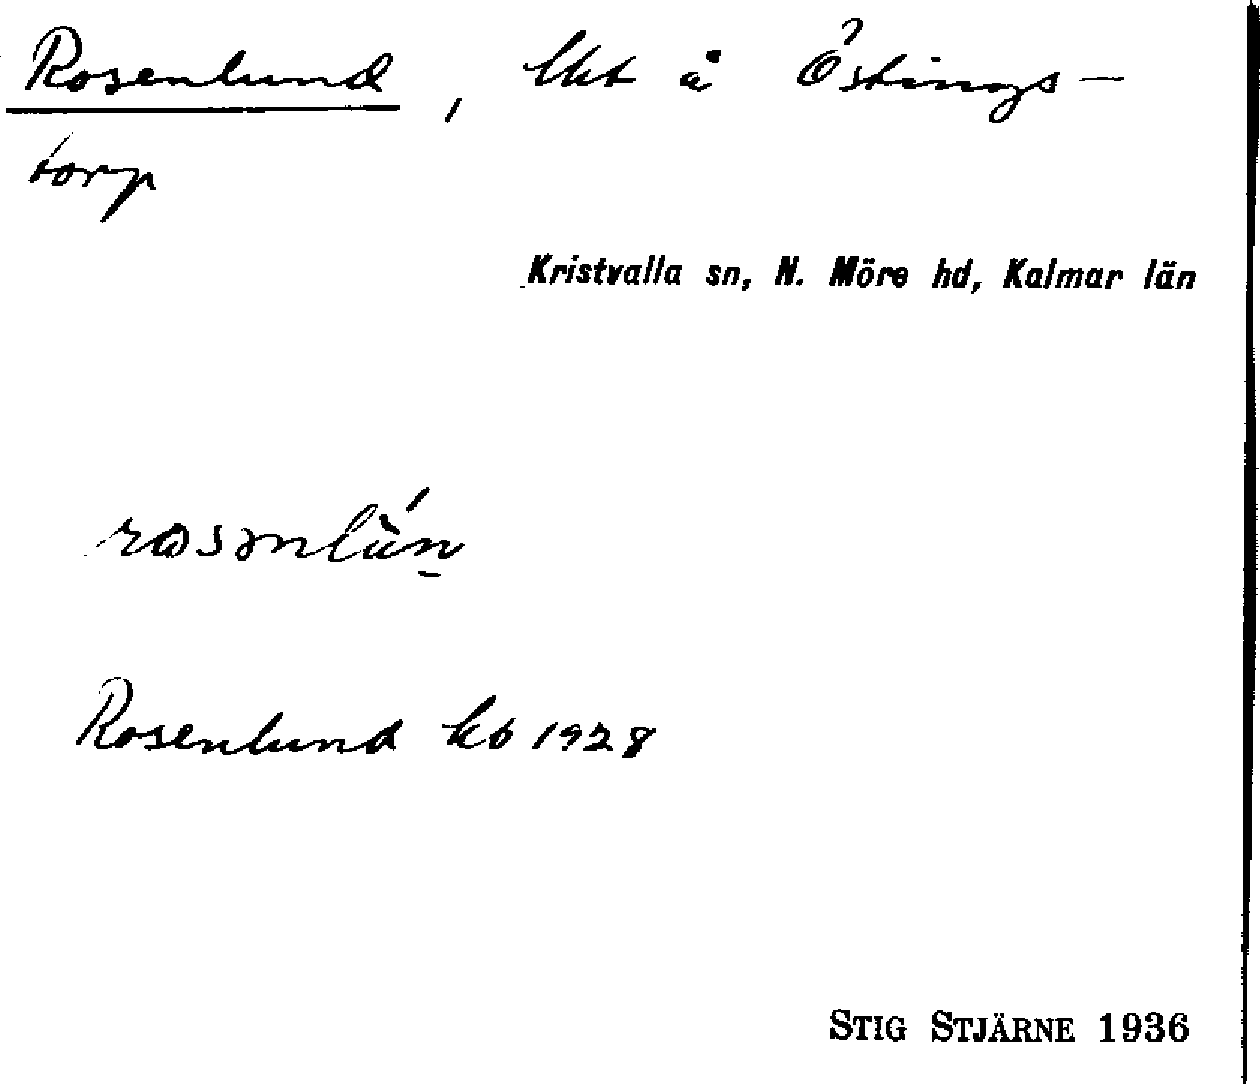 Rosenlund, lht å Östings-
torp
Kristvalla sn, N. Möre hd, Kalmar län
Rosenlund kb 1928
STIG STJÄRNE 1936